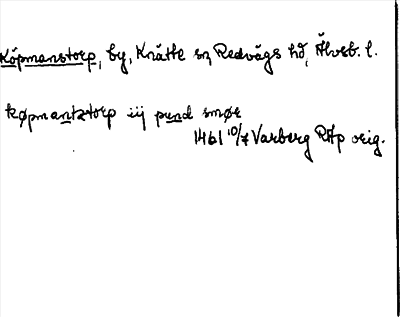 Köpmanstorp, by, Knätte sn, Redvägs hd, Älvsb. l.
køpmantztorp iij pund smør
1461 10/7 Varberg RAp orig.